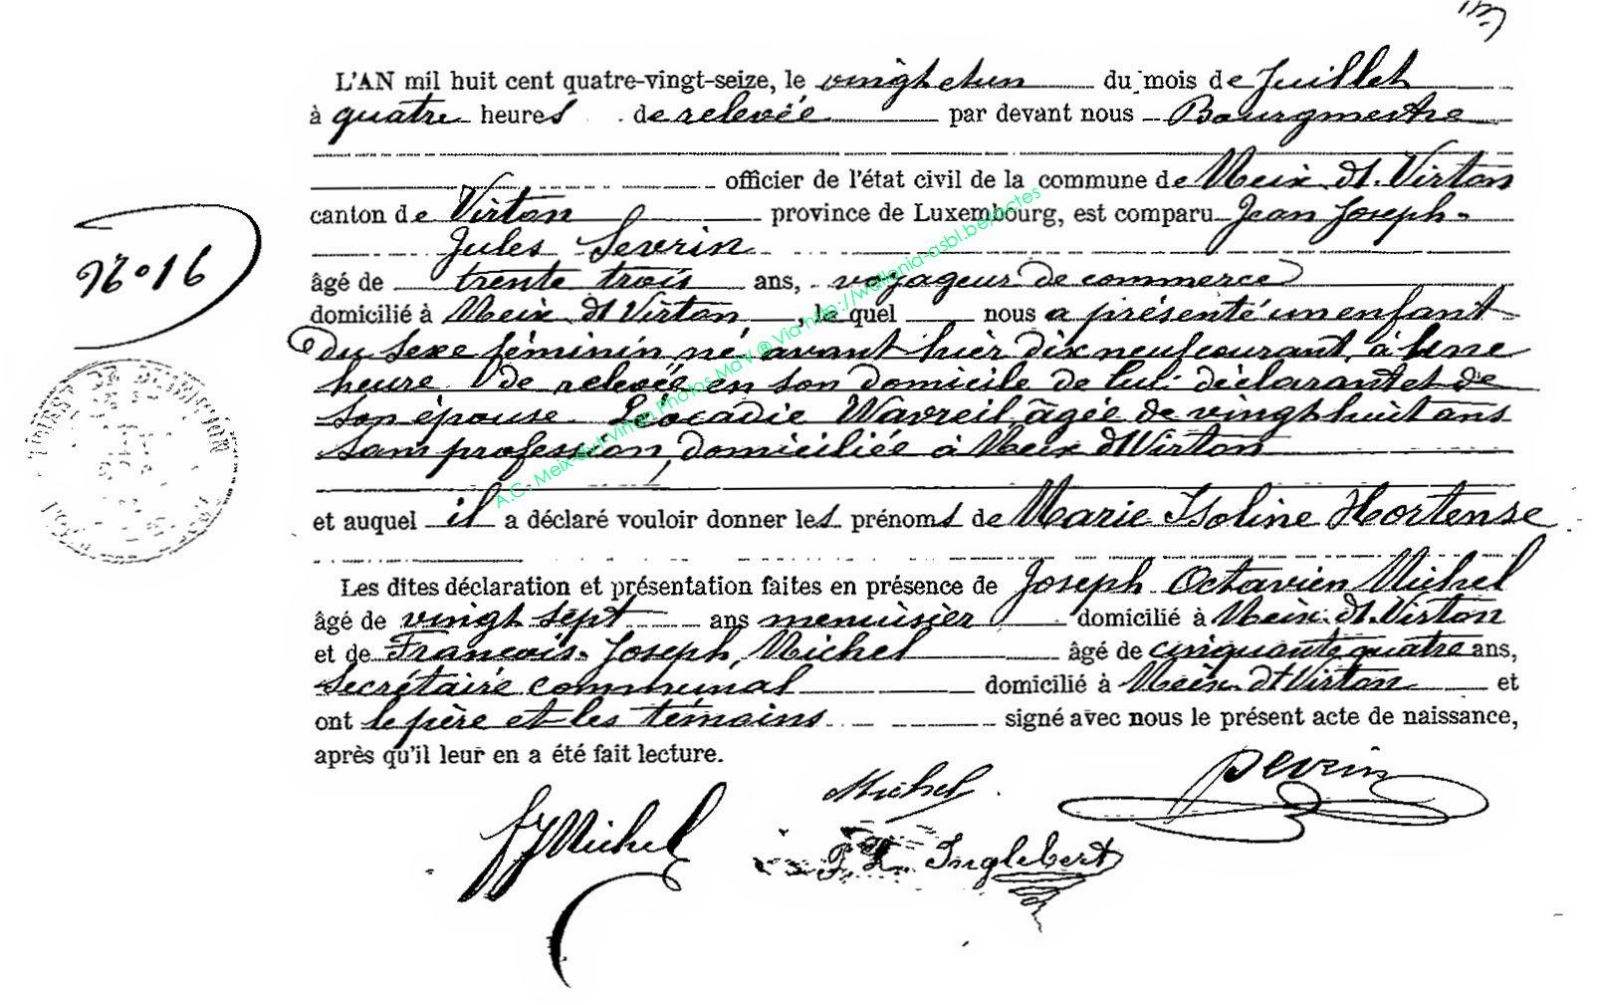 L'AN mil huit cent quatre-vingt-seize, le vingt et un du mois de Juillet
à quatre heures de relevée par devant nous Bourgmestre
officier de l'état civil de la commune de Meix dt. Virton
canton de Virton province de Luxembourg, est comparu Jean Joseph
Jules Severin
âgé de trente trois ans, voyageur de commerce
domicilié à Meix dt Virton, le quel nous a présenté un enfant
du sexe féminin né avant hier dix neuf courant, à Une
heure de relevée en son domicile de lui déclarant et de
son épouse Léocadie Wavreil âgée de vingt huit ans
sans profession, domiciliée à Meix dt Virton
et auquel il a déclaré vouloir donner les prénoms de Marie Isoline Hortense
Les dites déclaration et présentation faites en présence de Joseph Octavien Michel
âgé de vingt sept ans menuisier domicilié à Meix dt. Virton
et de François Joseph Michel âgé de cinquante quatre ans,
Secrétaire communal domicilié à Meix dt Virton et
ont le père et les témoins signé avec nous le présent acte de naissance,
après qu'il leur en a été fait lecture.
No 16
A.C. Meix-dvt-Virton Photos MdV ® Via http://wallonia-asbl.be/actes
Michel
Severin
fJMichel
Inglebert